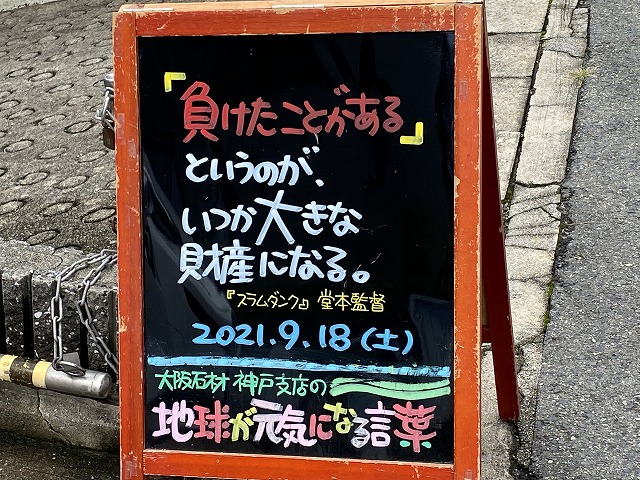 「負けたことがある」
というのが、
いつか大きな
財産になる。
『スラムダンク』 堂本監督
2021.9.18(土)
大阪石材 神戸支店の
地球が元気になる言葉